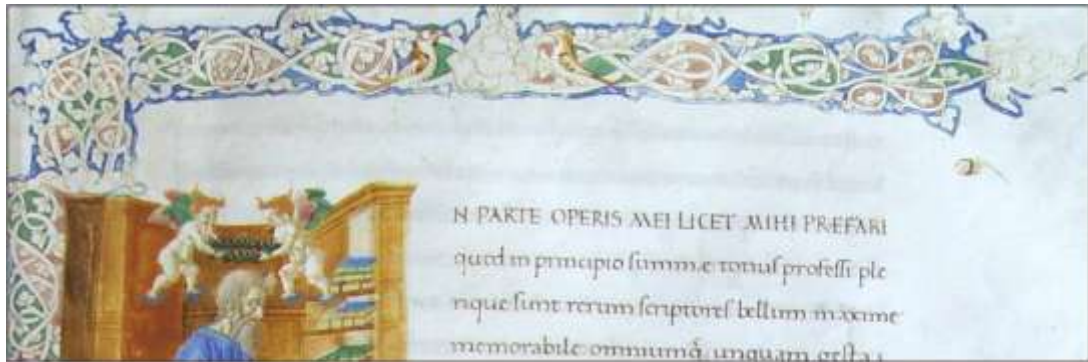 N PARTE OPERIS MEI LICET MIHI PRÆFARI
quod in principio summæ totius professi ple
rique sunt rerum scriptores bellum maxime
memorabile omniumq̃ unquam gesta